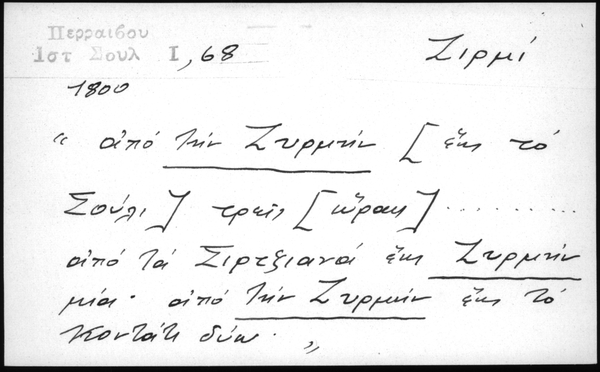 Περραιβου
Ιστ Σουλ Ι, 68
Ζιρμί
1800
“ ἀπό τήν Ζυρμήν [ ἕως τό
Σούλι ] τρεῖς [ ὥρας ] ..........
ἀπό τά Σιρτζιανά ἕως Ζυρμήν
μία · ἀπό τήν Ζυρμήν ἕως τό
Κοντάτι δύω · „